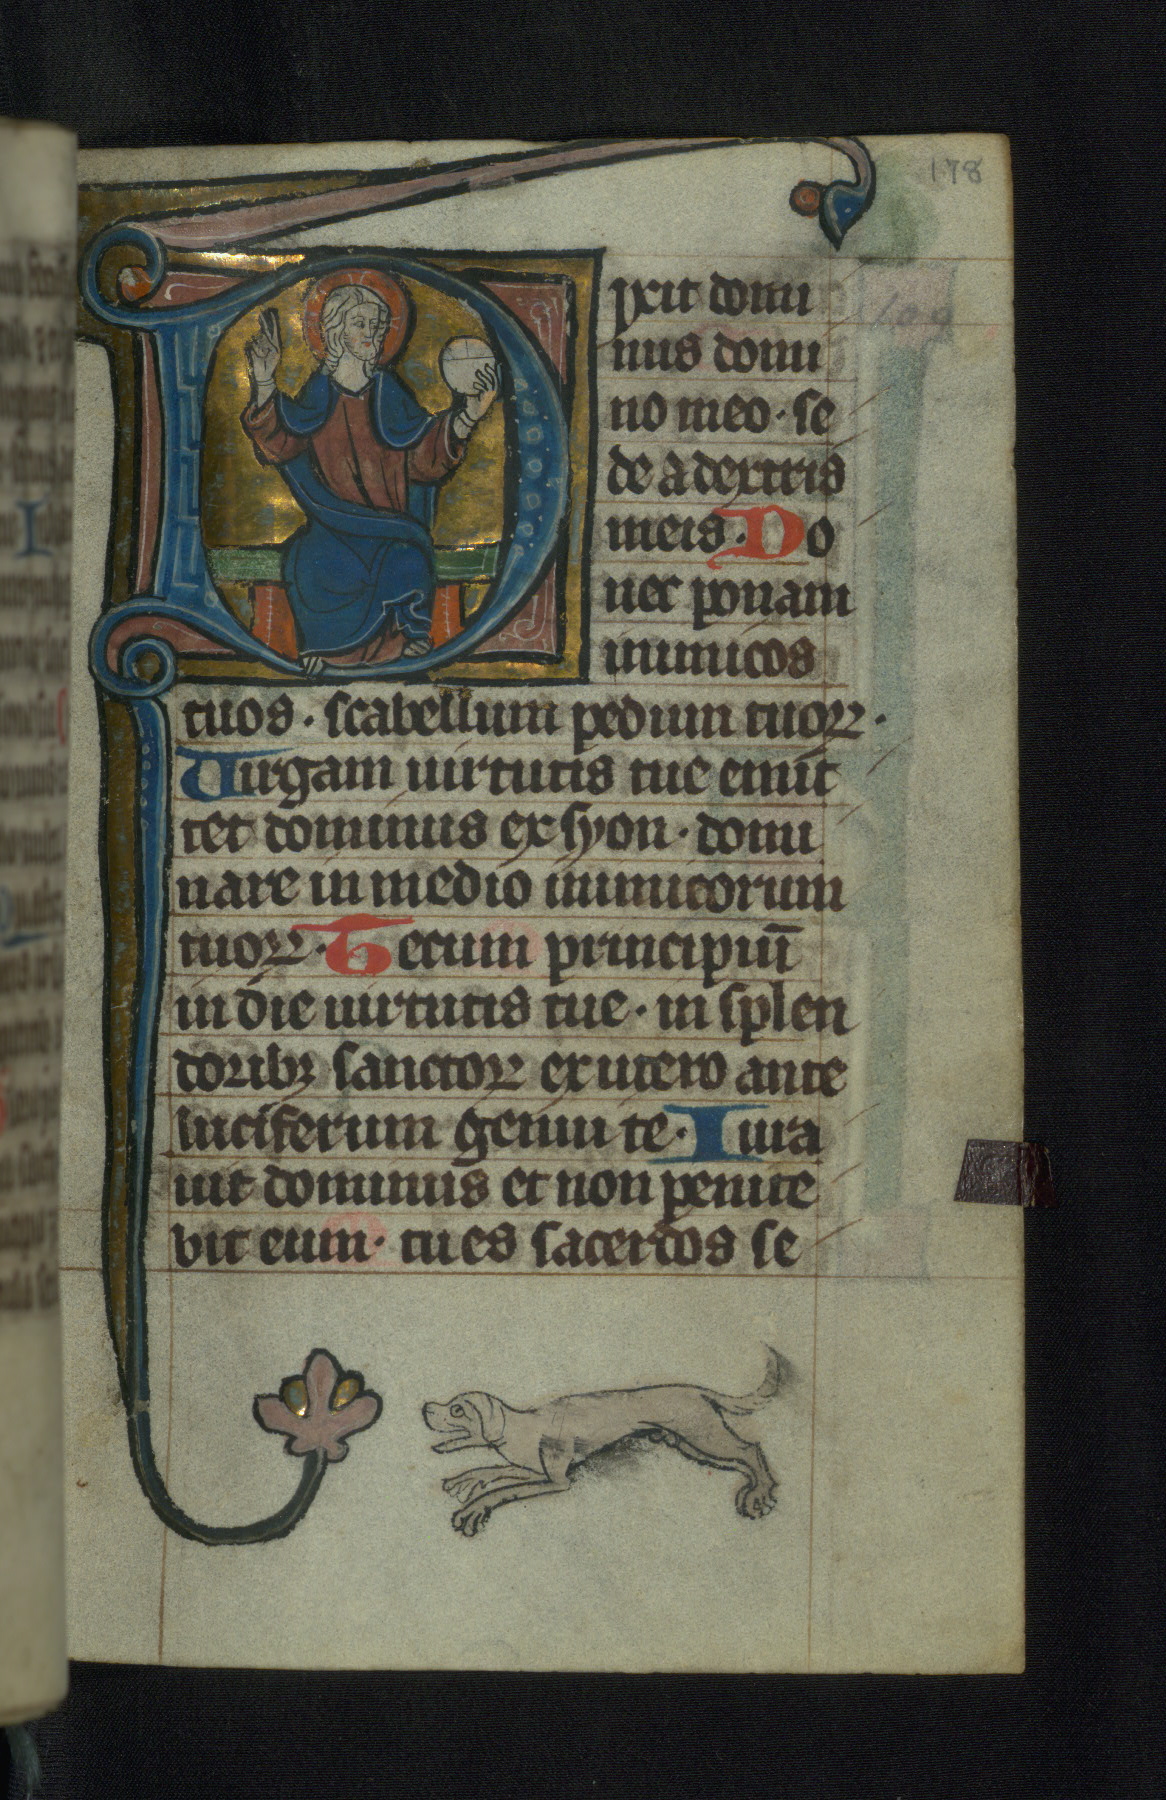 178
109
Dixit domi
nus domi
no meo · se
de a dextris
meis · Do
nec ponam
inimicos
tuos · scabellum pedum tuoꝝ ·
Uirgam uirtutis tue emit
tet dominus ex syon · domi
nare in medio inimicorum
tuoꝝ · Tecum principiū
in die uirtutis tue · in splen
doribꝫ sanctoꝝ ex utero ante
luciferum genui te · Iura
uit dominus et non penite
bit eum · tu es sacerdos se